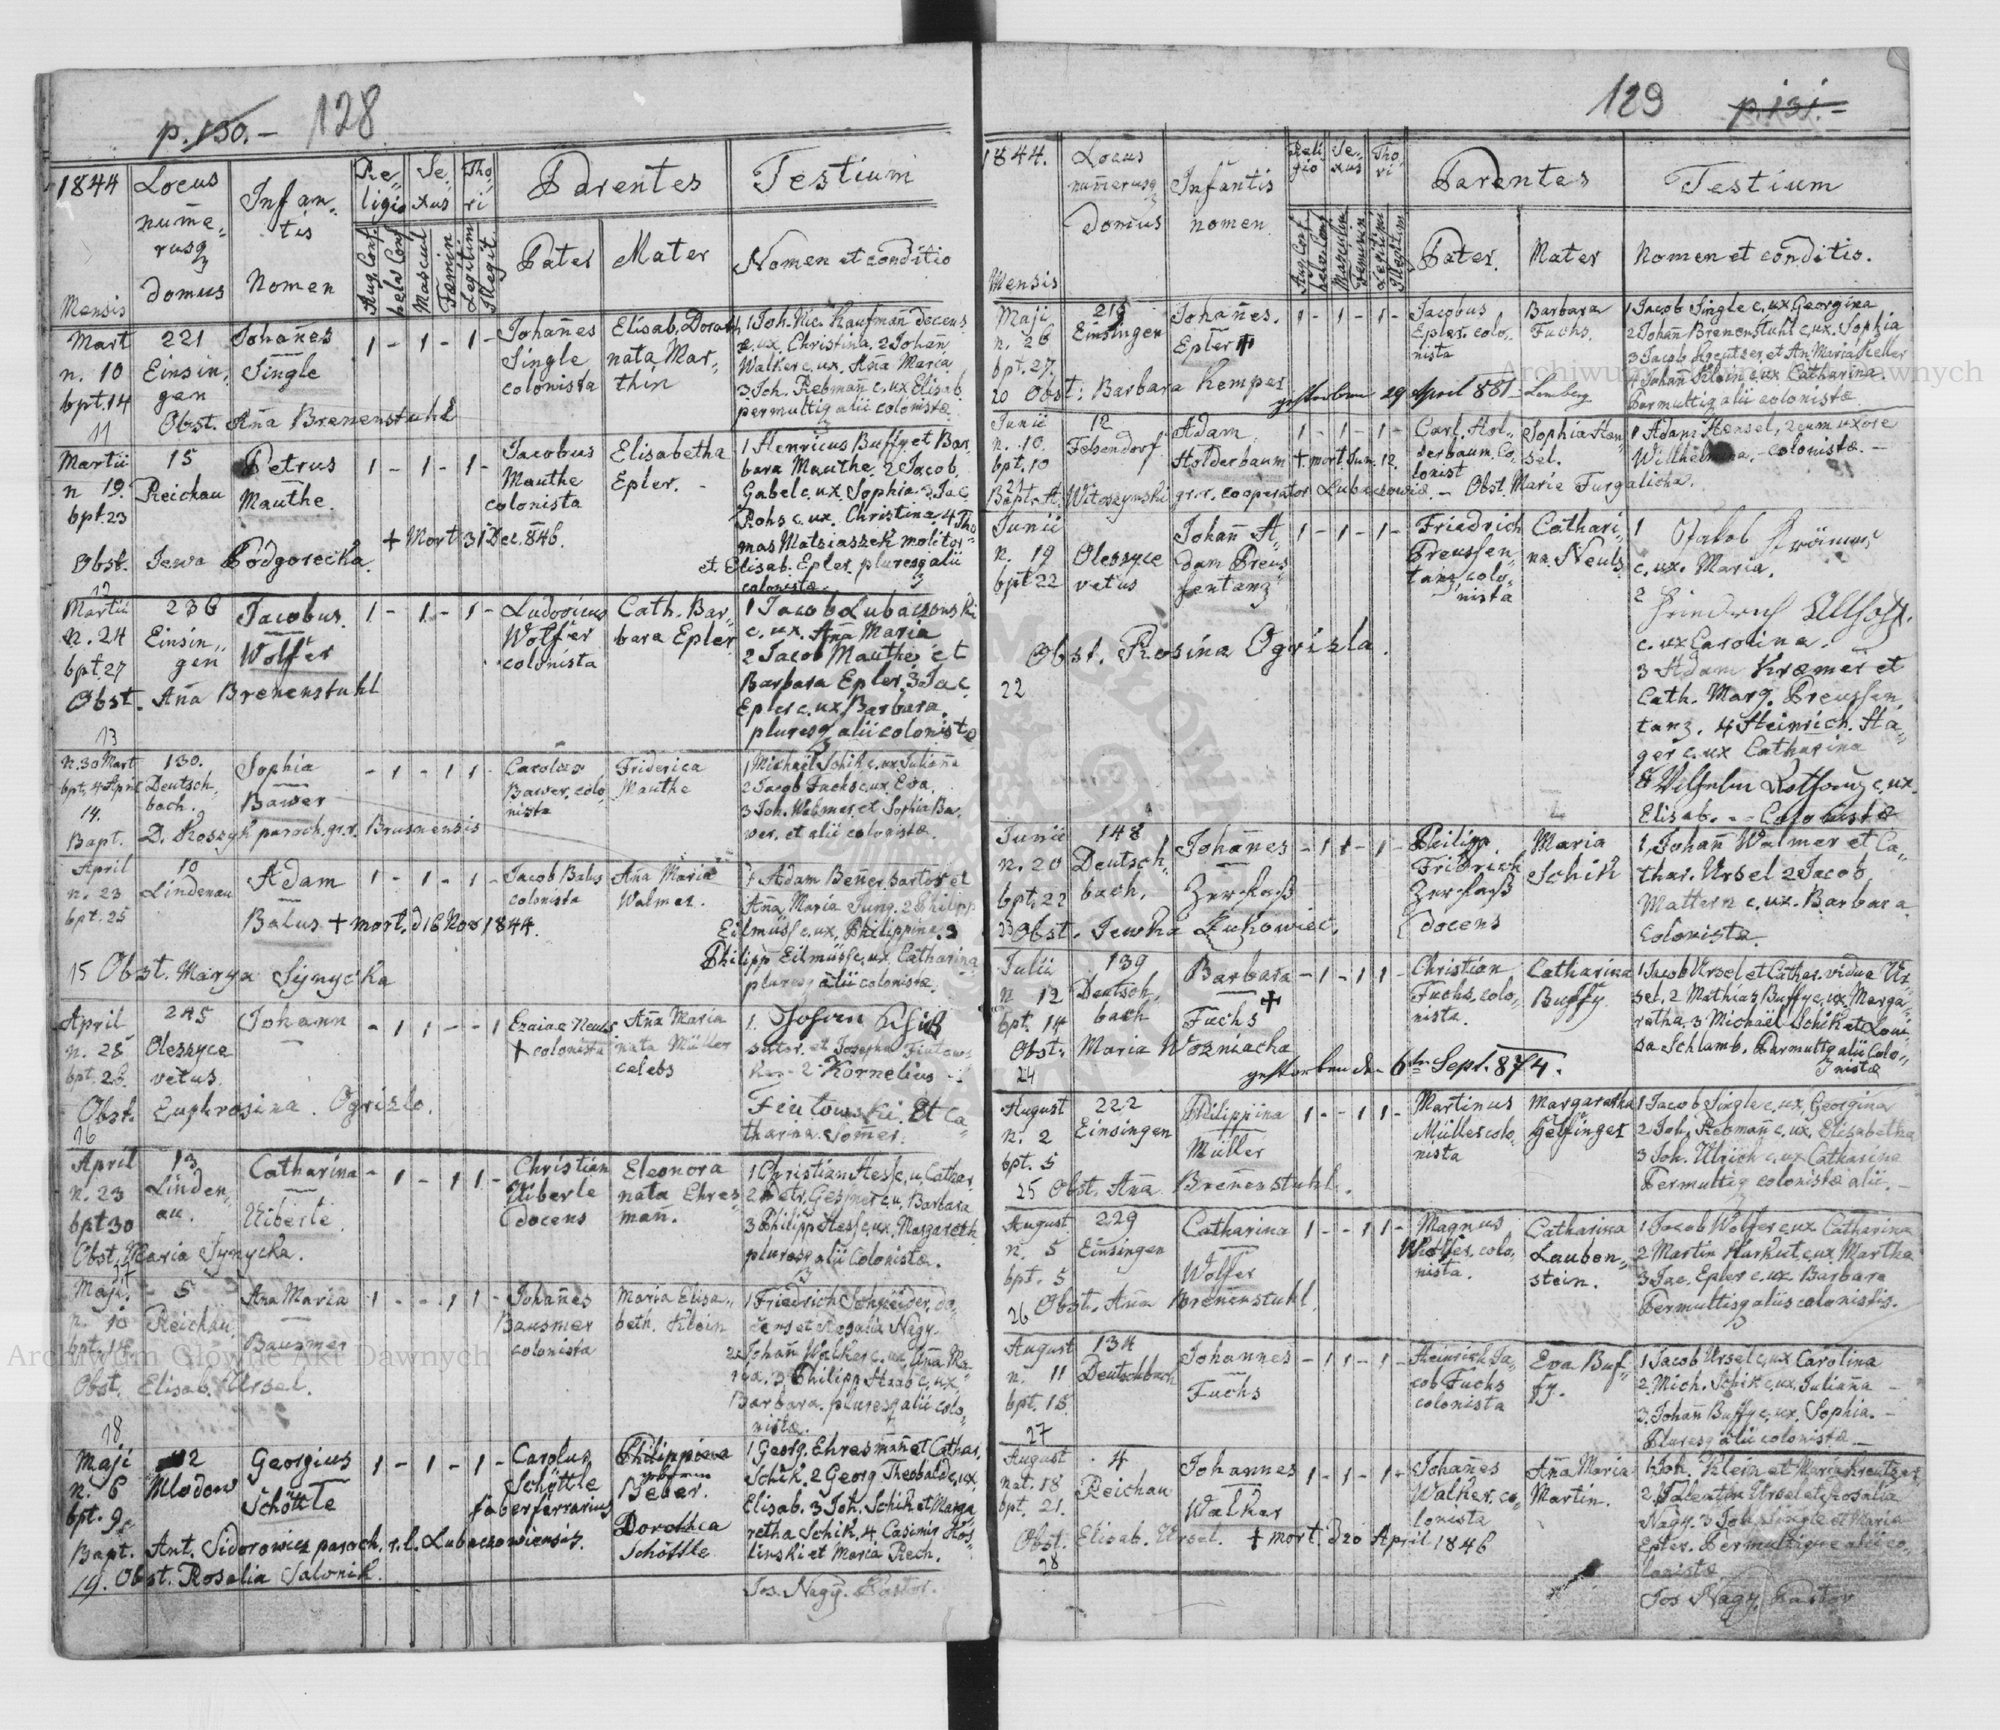 p. 130. - 128
1844 Locus numerusq domus Infantis Nomen Religio Sexus Thori Parentes Testium
Mensis Aug. Conf. helv. Conf Mascul Femin Legitim Illegit. Pater Mater Nomen et conditio
Mart n. 10 bpt. 14
221 Einsingen
Johañes Single
1 - 1 - 1 -
Johañes Single colonista
Elisab. Doroth. nata Marthin
1 Joh. Nic. Kaufmañ docens
c. ux. Christina, 2 Johan
Walker c. ux. Aña Maria
3 Joh. Rebmañ c. ux Elisab.
permultiq alii colonistæ.
Obst. Aña Brenenstuhl
11
Martii n 19. bpt. 23
15 Reichau
Petrus Mauthe.
1 - 1 - 1 -
Jacobus Mauthe colonista
Elisabetha Epler. -
1 Henricus Buffy et Bar-
bara Mauthe. 2 Jacob
Gabel c. ux Sophia. 3 Jac.
Rohs c. ux. Christina. 4 Tho-
mas Matsiaszek molitor
et Elisab. Epler. pluresq alii
colonistæ.
+ Mort 31 Dec. 846.
Obst. Jewa Podgorecka.
12
Martii n. 24 bpt. 27
236 Einsingen
Jacobus. Wolfer
1 - 1 - 1 -
Ludovicus Wolfer colonista
Cath. Barbara Epler
1 Jacob Lubaczowski
c. ux. Aña Maria
2 Jacob Mauthe et
Barbara Epler. 3 Jac.
Epler c. ux Barbara.
pluresq alii colonistæ
Obst. Aña Brenenstuhl
13
n. 30 Mart bpt. 4 April
130. Deutschbach.
Sophia Bawer
- 1 - 1 1 -
Carolus Bawer, colonista
Friderica Mauthe
1 Michael Schik c. ux Juliaña
2 Jacob Fuchs c. ux. Eva.
3 Joh. Walmer et Sophia Ba-
wer. et alii colonistæ.
14.
Bapt. D. Koszyk paroch. gr. r. Brusnensis
April n. 23 bpt. 25
10 Lindenau
Adam Balus
1 - 1 - 1 -
Jacob Balus colonista
Aña Maria Walmer.
1 Adam Beñer sartor et
Aña Maria Jung. 2 Philipp
Eilmüss c. ux. Philippina. 3
Philipp Eilmüss c. ux. Catharina
pluresq alii colonistæ.
+ mort. d 16 Nov 1844.
15 Obst. Marya Synycka
April n. 28 bpt. 28.
245 Oleszyce vetus.
Johann
- 1 1 - - 1
Ezaias Neuls + colonista
Aña Maria nata Müller celebs
1. Johan Schik
sutor. et Josepha Fiutows
ka - 2 Kornelius
Fiutowski. Et Ca-
tharina Somer.
Obst. Euphrosina. Ogrizlo.
16
April n. 23 bpt 30
13 Lindenau.
Catharina Uiberle.
- 1 - 1 1 -
Christian Uiberle docens
Eleonora nata Ehresmañ.
1 Christian Hess c. u. Cathar.
2 Petr. Gesner c. u. Barbara
3 Philipp Hess c. ux. Margareth
pluresq alii Colonistæ.
Obst. Maria Synycka.
17
Maji. n. 10 bpt. 14
5 Reichau.
Aña Maria Bausmer
1 - - 1 1 -
Johañes Bausmer colonista
Maria Elisabeth. Klein
1 Friedrich Schneider, do-
cens et Rosalia Nagy.
2 Johañ Walker c. ux. Aña Ma-
ria. 3 Philipp Staab c. ux.
Barbara. pluresq alii colo-
nistæ.
Obst. Elisab. Ursel.
18.
Maji n. 6 bpt. 9.
2 Mlodow
Georgius Schöttle
1 - 1 - 1 -
Carolus Schöttle faberferrarius
Philippina Weber. Dorothea Schöttle
1 Georg. Ehresmañ et Cathar.
Schik. 2 Georg Theobald c. ux.
Elisab. 3 Joh. Schik et Marga-
retha Schik. 4. Casimir Kos-
linski et Maria Rech.
Bapt. Ant. Sidorowicz paroch. r. l. Lubaczowiensis.
19. Obst. Rosalia Salonik.
Jos. Nagy. Pastor.
129 p. 131. -
1844. Locus numerusq Domus Infantis nomen Religio Sexus Thori Parentes Testium
Mensis Aug. Conf helv. Conf Masculin Feminin Legitim Illegitim Pater. Mater Nomen et conditio.
Maji n. 26 bpt. 27.
Einsingen
Johañes. Epler +
1 - 1 - 1 -
Jacobus Epler. colonista
Barbara Fuchs.
1 Jacob Single c. ux. Georgina
2 Johañ Brenenstuhl c. ux. Sophia
3 Jacob Kreutzer et An. Maria Keller
4 Johañ Klein c. ux Catharina.
Permultiq alii colonistæ.
20 Obst: Barbara Kemper
gestorben 29 April 881 - Lemberg
Junii n. 10. bpt. 10
12 Felsendorf
Adam Holderbaum
1 - 1 - 1 -
+ mort. Jun. 12.
Carl. Holderbaum. Colonist
Sophia Hensel.
1 Adam Hensel, 2 cum uxore
Wilhelmina. - colonistæ. -
21
Bapt. A. Witoszynski gr. r. cooperator Lubaczowiæ. - Obst. Marie Furgalicha.
Junii n. 19 bpt 22
Oleszyce vetus
Johañ Adam Preussentanz
1 - 1 - 1 -
Friedrich Preussentanz, colonista
Catharina. Neuls
1 Jakob Krämer
c. ux. Maria.
2 Friedrich
c. ux Carolina.
3 Adam Kræmer et
Cath. Marg. Preussen
tanz. 4 Heinrich. Ha-
ger c. ux Catharina
Wilhelm c. ux.
Elisab. - - Colonistæ
Obst. Rosina Ogrizla.
22
Junii n. 20 bpt. 22
148 Deutschbach.
Johañes Zerfass
- 1 1 - 1 -
Philipp. Fridrich Zerfass docens
Maria Schik
1. Johañ Walmer et Ca-
thar. Ursel 2 Jacob
Mattern c. ux. Barbara.
colonistæ.
23 Obst. Jewka Zukowiec.
Julii n 12 bpt. 14
139 Deutschbach
Barbara Fuchs +
- 1 - 1 1 -
Christian Fuchs, colonista.
Catharina Buffy.
1 Jacob Ursel et Cathar. vidua Ur-
sel. 2 Mathias Buffy c. ux. Marga-
retha. 3 Michael Schik et Loui-
sa Schlamb. Permultq alii Colo-
nistæ
Obst. Maria Wozniacka
24 gestorben den 6ten Sept. 874.
August n. 2 bpt. 5
222 Einsingen
Philippina Müller
1 - - 1 1 -
Martinus Müller colonista
Margaretha Helfinger
1 Jacob Single c. ux. Georgina
2 Joh. Rebmañ c. ux. Elisabetha
3 Joh. Ulrich c. ux Catharina
Permultiq colonistæ alii. -
25 Obst. Aña Breñenstuhl.
August. n. 5 bpt. 5
229 Einsingen
Catharina Wolfer
1 - - 1 1 -
Magnus Wolfer. colonista.
Catharina Laubenstein.
1 Jacob Wolfer c. ux Catharina
2 Martin Harkut c. ux Martha
3 Jac. Epler c. ux. Barbara
Permultisq aliis colonistis.
26 Obst. Aña Brenenstuhl.
August n. 11 bpt. 18.
134 Deutschbach
Johannes Fuchs
- 1 1 - 1 -
Heinrich Jacob Fuchs colonista
Eva Buffy.
1 Jacob Ursel c. ux Carolina
2. Mich. Schik c. ux. Juliaña -
3. Johañ Buffy c. ux. Sophia. -
Pluresq alii colonistæ -
27
August nat. 18 bpt. 21.
4 Reichau
Johannes Walker
1 - 1 - 1 -
Johañes Walker. colonista
Aña Maria Martin.
1. Joh. Klein et Maria Kreutzer
2. Valentin Ursel et Rosalia
Nagy. 3 Joh. Single et Maria
Epler. Permultique alii co-
lonistæ
Obst. Elisab. Ursel. + mort. d 20 April 1846
28
Jos Nagy. Pastor
Archiwum Główne Akt Dawnych
Archiwum Główne Akt Dawnych